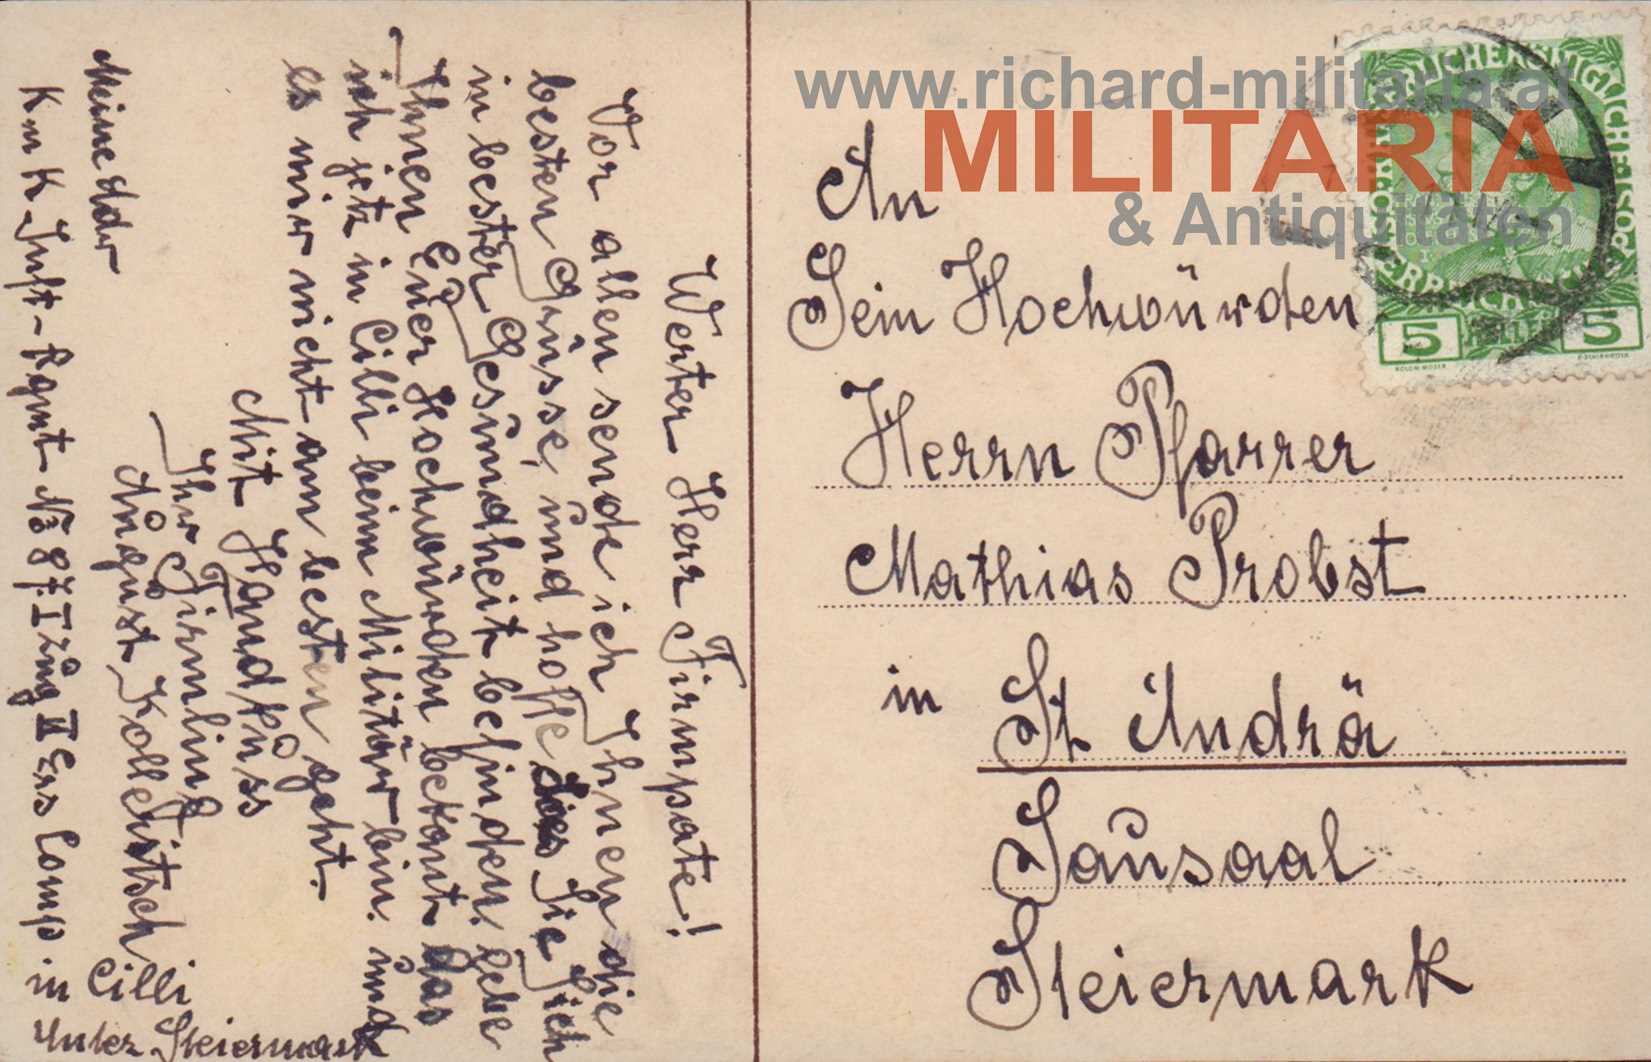 Werter Herr Firmpate!
Vor allen sende ich Ihnen die
besten Grüsse, und hoffe Sie Sich
in bester Gesundheit befinden. gebe
Ihnen Euer Hochwürden bekant das
ich jetz in Cilli beim Militär bin. und
es mir nicht am besten geht.
Mit Handküss
Ihr Firmling
August Kolleritsch
Meine Adr
K u K Inft-Rgmt No 87. I Zug II Ers Comp
in Cilli
Unter Steiermark
An
Sein Hochwürden
Herrn Pfarrer
Mathias Probst
in St Andrä
Sausaal
Steiermark
5 HELLER 5
KOLOM. MOSER
F. SCHIRNBÖCK
www.richard-militaria.at
MILITARIA
& Antiquitäten